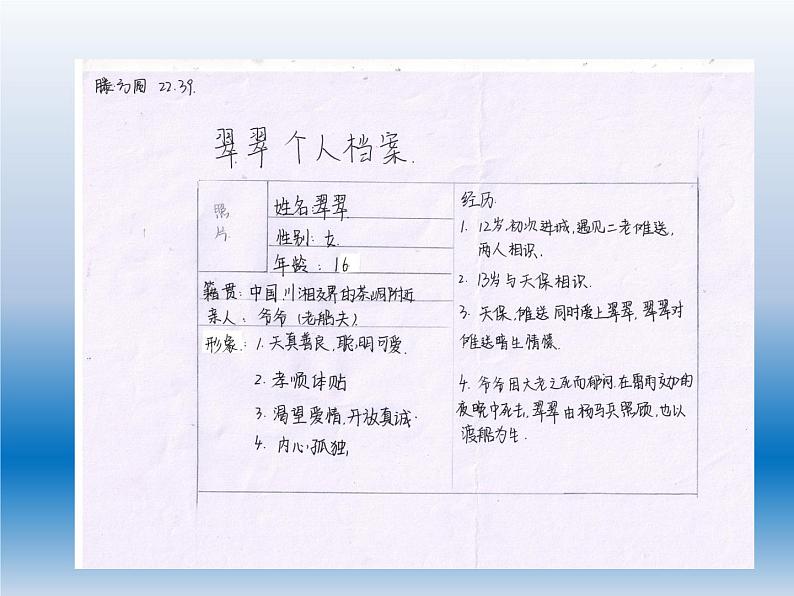 滕方园 22.39.
翠翠 个人档案.
照
片
姓名:翠翠
性别: 女
年龄 : 16
籍贯: 中国川湘交界的茶峒附近
亲人: 爷爷 (老船夫)
形象: 1. 天真善良, 聪明可爱.
2. 孝顺体贴
3. 渴望爱情, 开放真诚.
4. 内心孤独
经历.
1. 12岁,初次进城,遇见二老傩送,
两人相识.
2. 13岁与天保相识.
3. 天保,傩送 同时爱上翠翠, 翠翠对
傩送暗生情愫.
4. 爷爷因大老之死而郁闷.在雷雨交加的
夜晚中死去, 翠翠由杨马兵照顾, 也以
渡船为生.